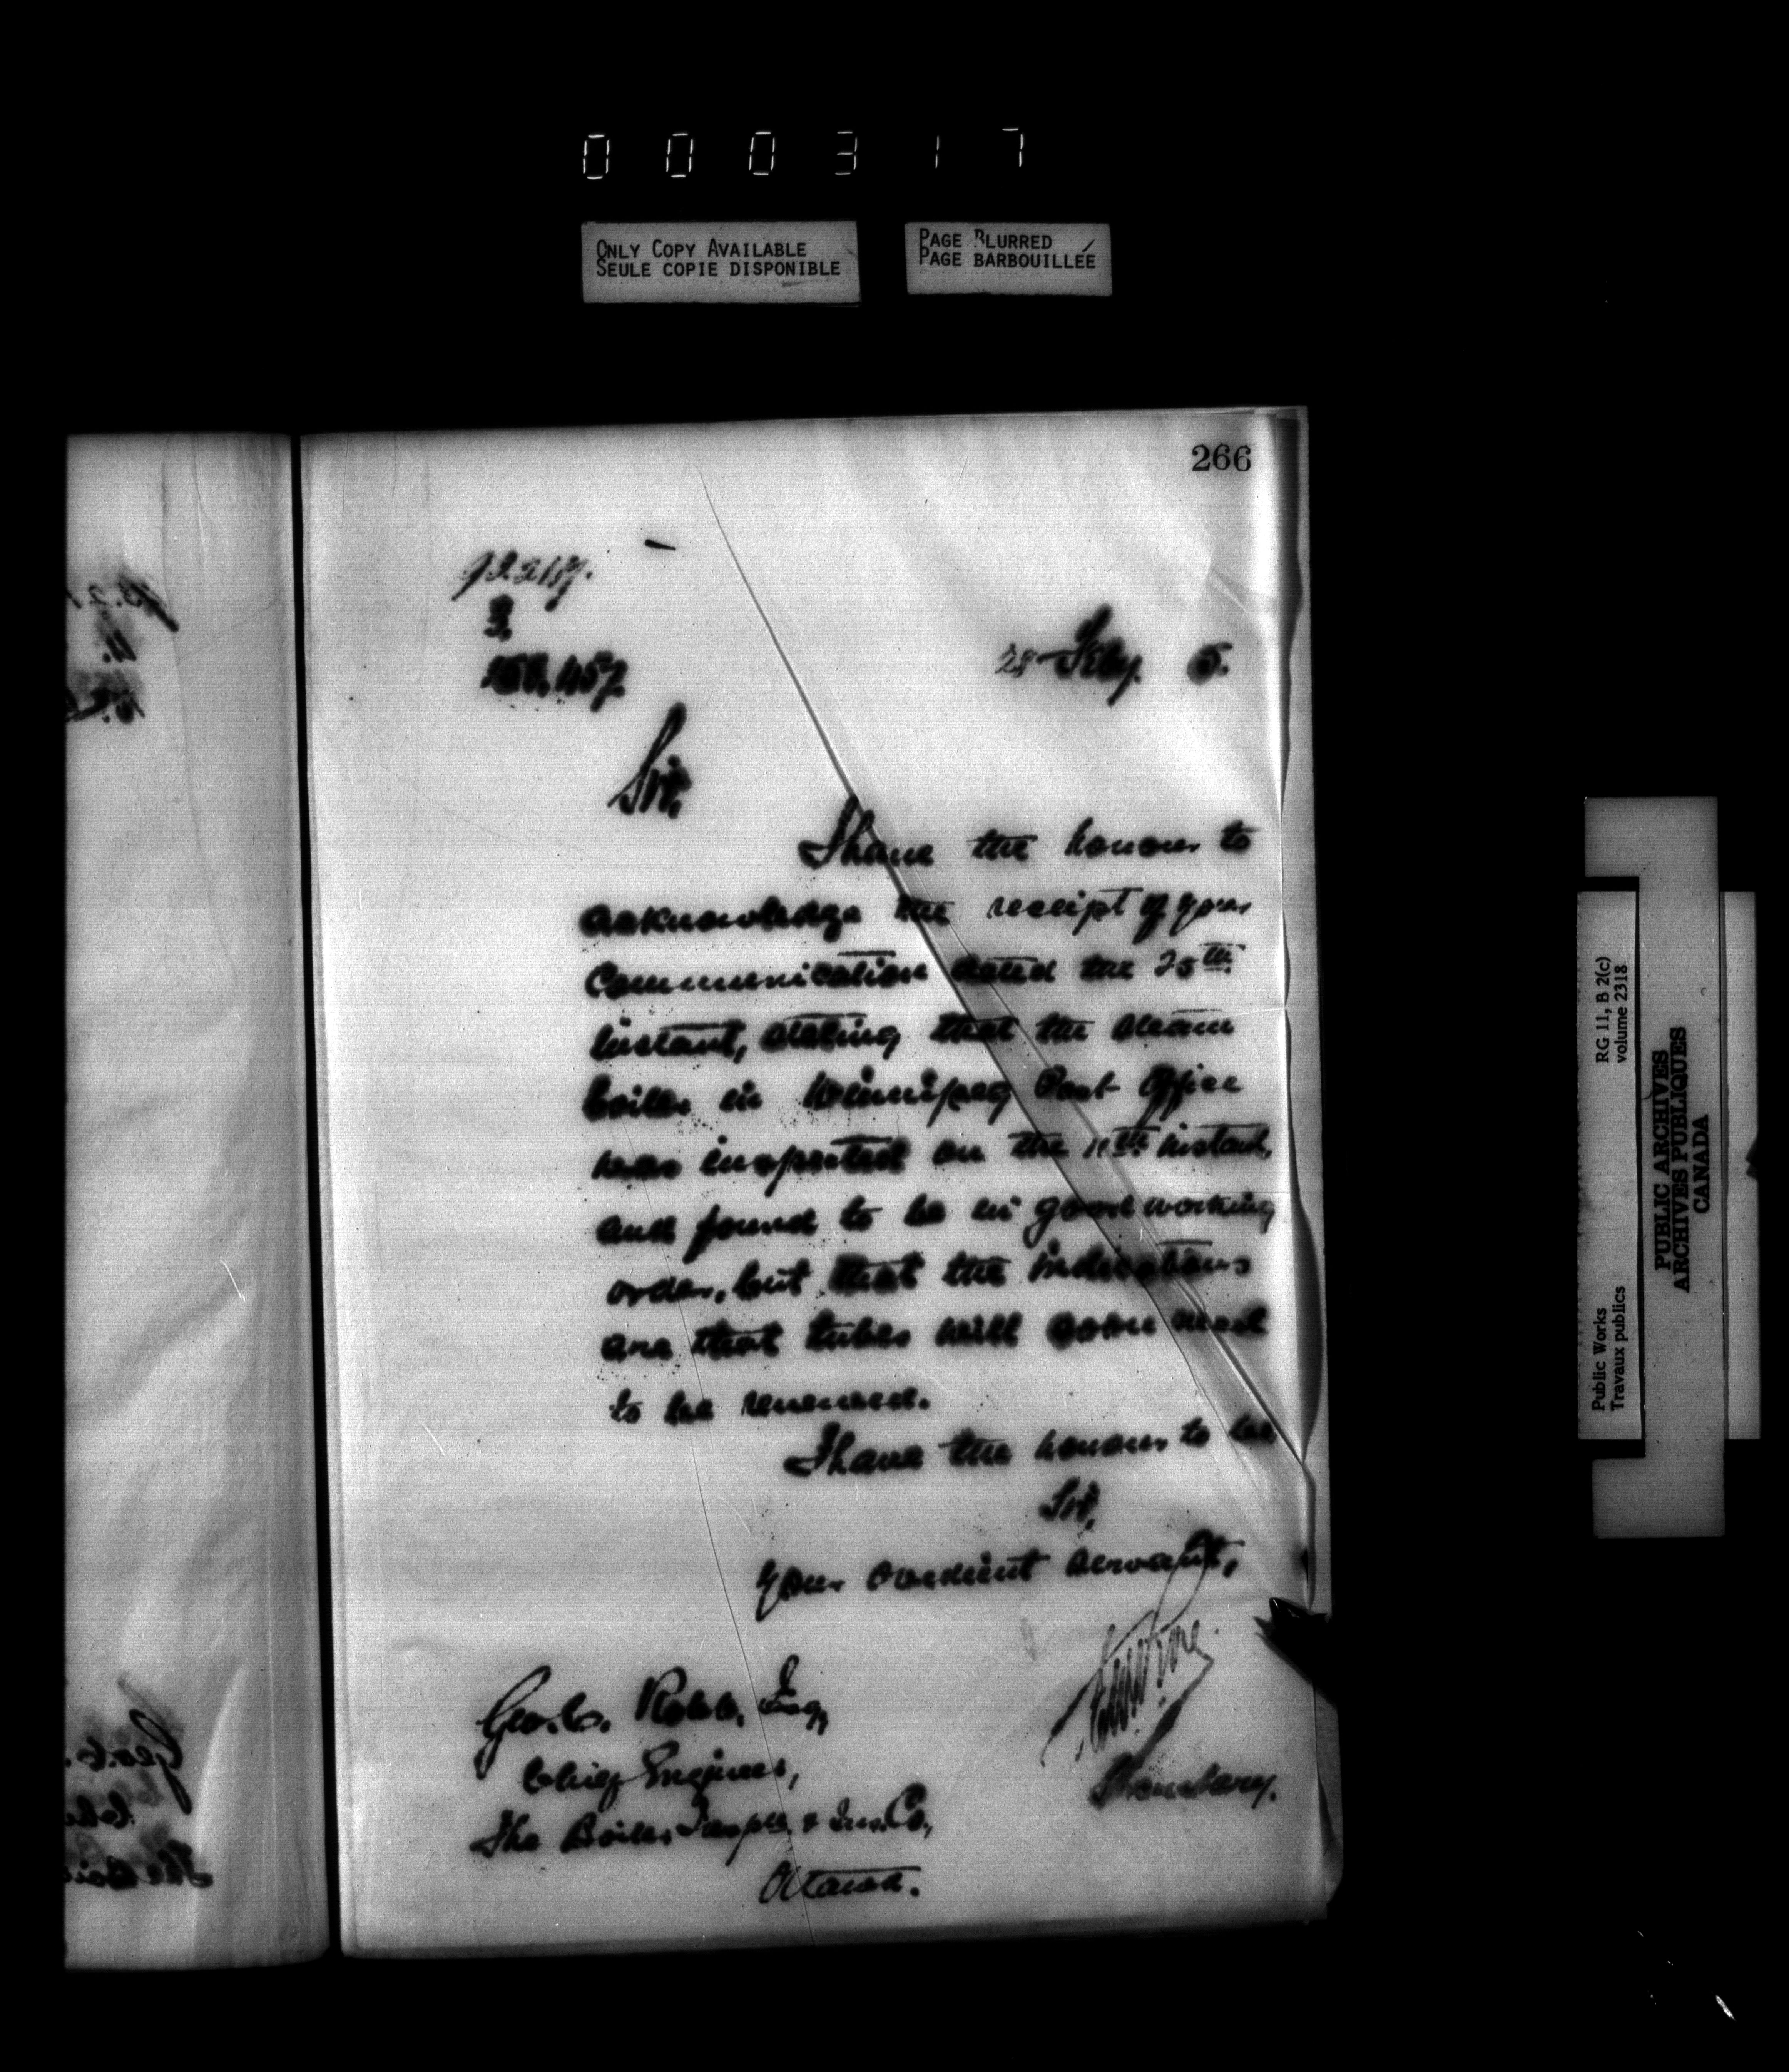 000317
ONLY COPY AVAILABLE
SEULE COPIE DISPONIBLE
PAGE BLURRED
PAGE BARBOUILLÉE
266
3.
28 Feby. 5.
Sir,
I have the honour to
acknowledge the receipt of your
communication dated the 25th
instant, stating that the steam
boiler in Winnipeg Post Office
was inspected on the 11th instant,
and found to be in good working
order, but that the indications
are that tubes will soon need
to be renewed.
I have the honour to be
Sir,
Your obedient servant,
Secretary.
Geo. C. Robb, Esq,
Chief Engineer,
The Boiler Inspn. & Ins. Co.,
Ottawa.
RG 11, B 2(c)
volume 2318
Public Works
Travaux publics
PUBLIC ARCHIVES
ARCHIVES PUBLIQUES
CANADA